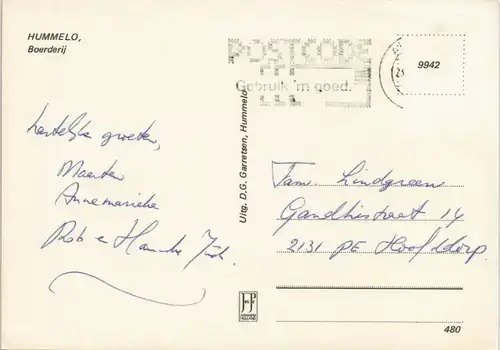 HUMMELO,
Boerderij
POSTCODE
Gebruik 'm goed.
9942
hartelijke groeten,
Maarten
Annemarieke
Rob e Hanneke
Uitg. D.G. Garretsen, Hummelo
Fam. Lindgreen
Gandhistraat 14
2131 PE Hoofddorp
JosPé
ARNHEM
HOLLAND
480